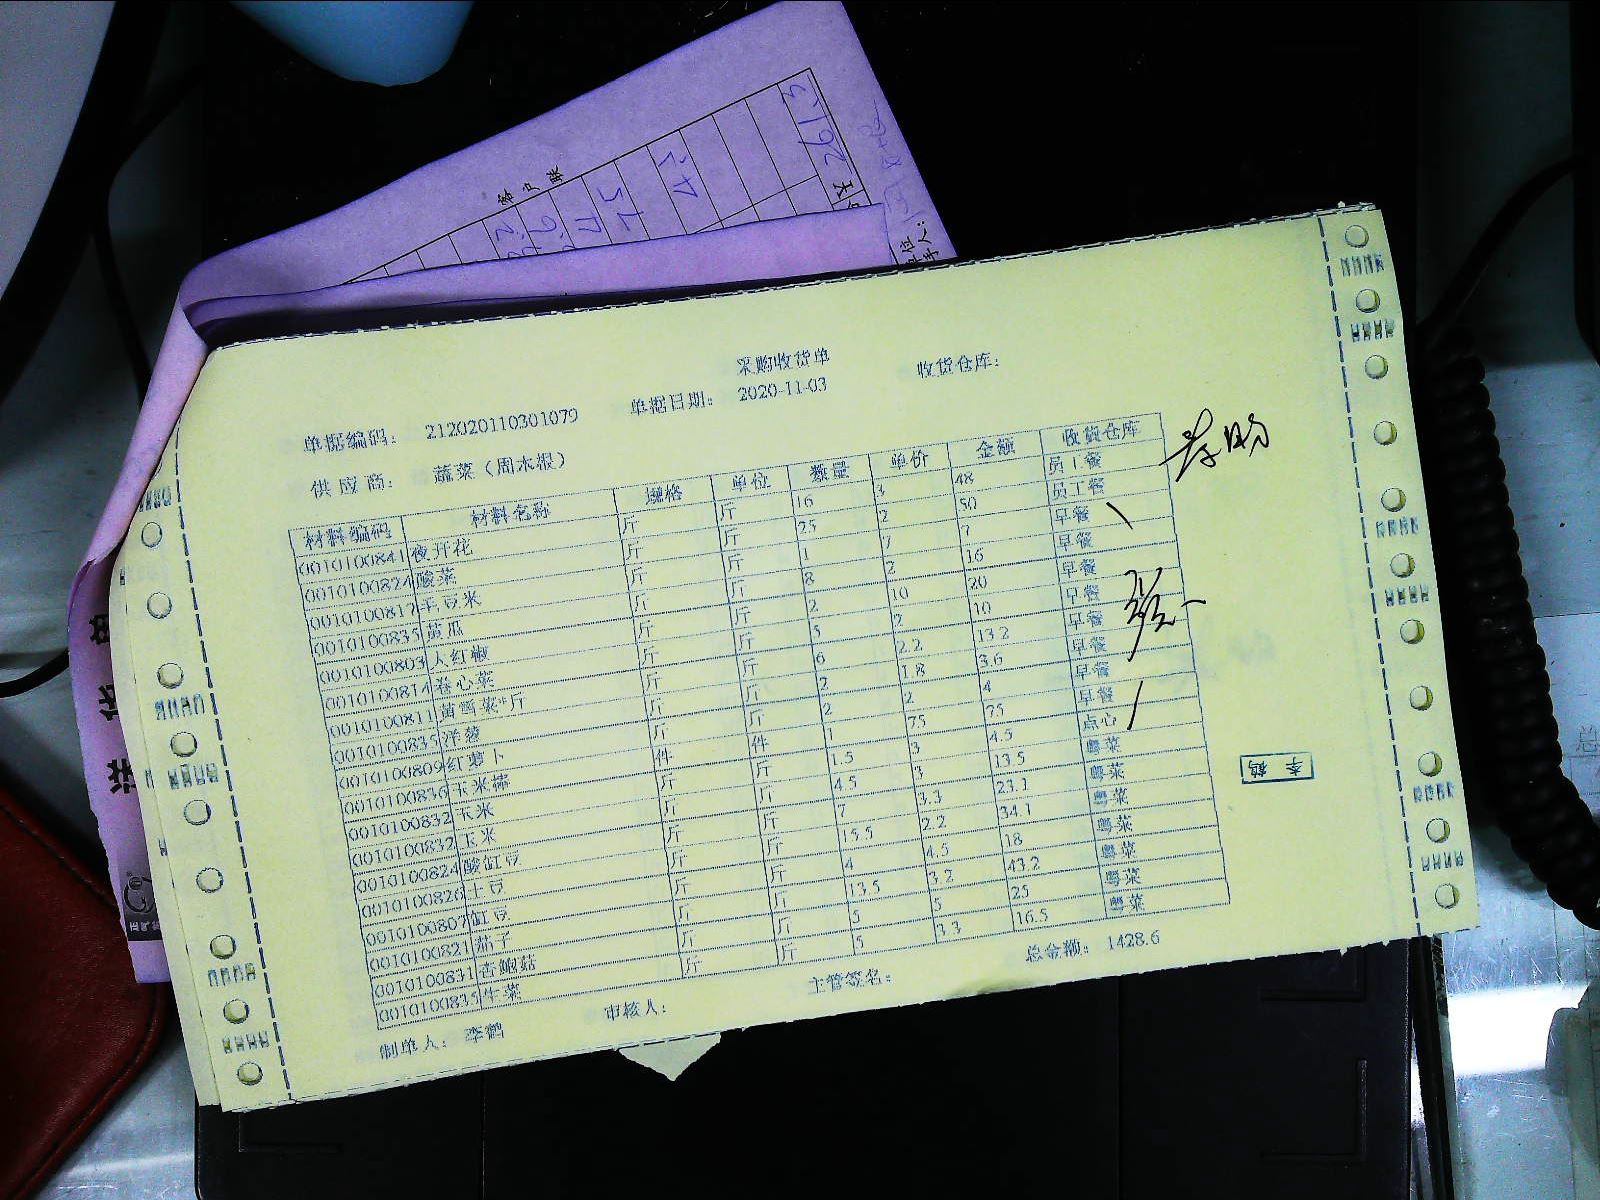 采购收货单
单据编码: 212020110301079 单据日期: 2020-11-03 收货仓库:
供应商: 蔬菜(周本根)
材料编码 材料名称 规格 单位 数量 单价 金额 收货仓库
0010100841 夜开花 斤 斤 16 3 48 员工餐
0010100824 酸菜 斤 斤 25 2 50 员工餐
0010100817 毛豆米 斤 斤 1 7 7 早餐
0010100835 黄瓜 斤 斤 8 2 16 早餐
0010100803 大红椒 斤 斤 2 10 20 早餐
0010100814 卷心菜 斤 斤 5 2 10 早餐
0010100811 黄芽菜*斤 斤 斤 6 2.2 13.2 早餐
0010100835 洋葱 斤 斤 2 1.8 3.6 早餐
0010100809 红萝卜 斤 斤 2 2 4 早餐
0010100836 玉米棒 件 件 1 75 75 早餐
0010100832 玉米 斤 斤 1.5 3 4.5 点心
0010100832 玉米 斤 斤 4.5 3 13.5 粤菜
0010100824 酸缸豆 斤 斤 7 3.3 23.1 粤菜
0010100826 土豆 斤 斤 15.5 2.2 34.1 粤菜
0010100807 缸豆 斤 斤 4 4.5 18 粤菜
0010100821 茄子 斤 斤 13.5 3.2 43.2 粤菜
0010100831 杏鲍菇 斤 斤 5 5 25 粤菜
0010100835 生菜 斤 斤 5 3.3 16.5 粤菜
总金额: 1428.6
制单人: 李鹤 审核人: 主管签名:
李鹤
客户联